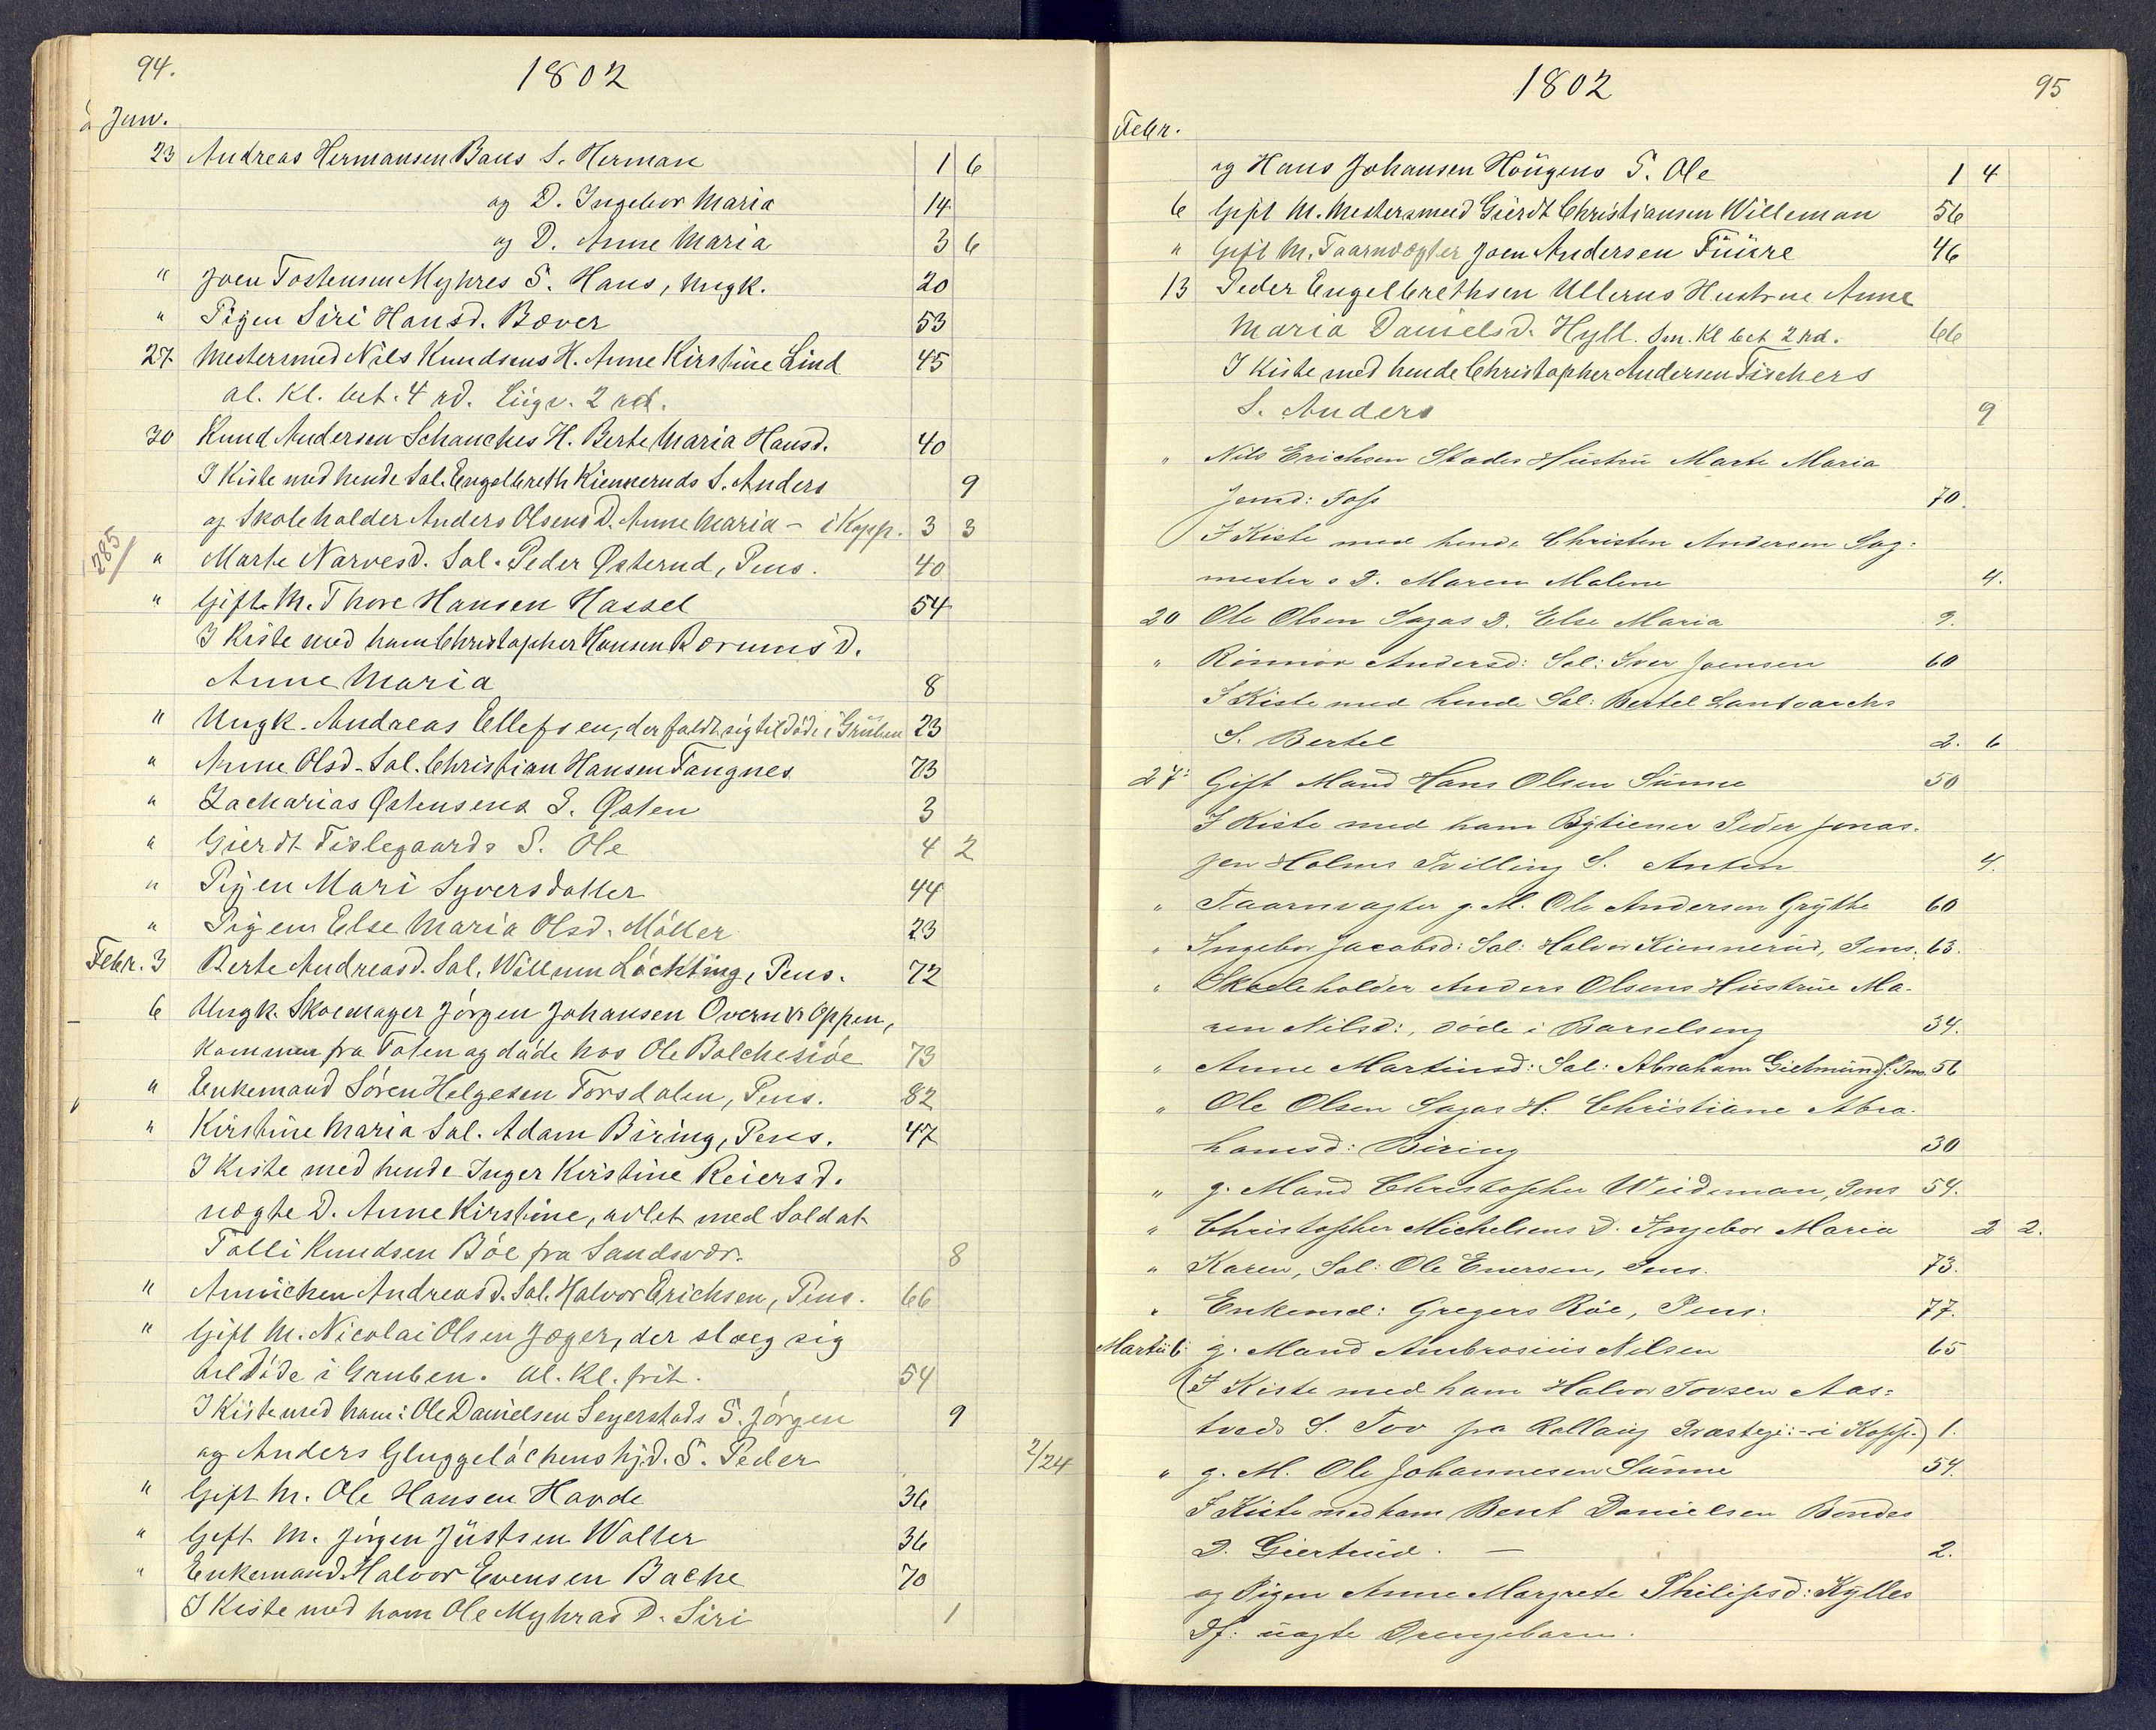 94.
1802
à Janv.
23 Andreas Hermansen Baus S. Herman 1 6
og D. Ingebor Maria 14
og D. Anne Maria 3 6
" Joen Tostensen Myhres S. Hans, Ungk. 20
" Pigen Siri Hansd. Bæver 53
27 Mestersmed Nils Knudsens H. Anne Kirstine Lind 45
al. Kl. bet. 4 rd. Liigv. 2 rd.
30 Knud Andersen Schanches H. Berte Maria Hansd. 40
I Kiste med hende Sal. Engelbreth Kienneruds S. Anders 9
og Skoleholder Anders Olsens D. Anne Maria - i Kopp. 3 3
285/ " Marte Narvesd. Sal. Peder Østerud, Pens. 40
" Gift M. Thore Hansen Hassel 54
I Kiste med ham Christopher Hansen Bærums D.
Anne Maria 8
" Ungk. Andreas Ellefsen, der faldt sig til Døde i Gruben 23
" Anne Olsd. Sal. Christian Hansen Fangnes 73
" Zacharias Østensens S. Østen 3
" Gierdt Tislegaards S. Ole 4 2
" Pigen Mari Syversdatter 44
" Pigen Else Maria Olsd. Møller 23
Febr. 3 Berte Andreasd. Sal. Willum Löchting, Pens. 72
6 Ungk. Skoemager Jörgen Johansen Overn Oppen,
kommen fra Toten og døde hos Ole Bolchesiøe 73
" Enkemand Søren Helgesen Torsdalen, Pens. 82
" Kirstine Maria Sal. Adam Biring, Pens. 47
I Kiste med hende Inger Kirstine Reiersd.
uægte D. Anne Kirstine, avlet med Soldat
Tolli Knudsen Bøe fra Sandsvær. 8
" Annichen Andreasd. Sal. Halvor Erichsen, Pens. 66
" Gift M. Nicolai Olsen Jæger, der sloeg sig
til Døde i Gruben. al. Kl. frit. 54
I Kiste med ham: Ole Danielsen Seyerstads S. Jørgen 9
og Anders Gluggeløchens hjd. S. Peder 2/24
" Gift M. Ole Hansen Havde 36
" Gift M. Jørgen Jüstsen Wolter 36
" Enkemand Halvor Evensen Bache 70
I Kiste med ham Ole Myhras D. Siri 1
1802
95
Febr.
og Hans Johansen Höugens S. Ole 1 4
6 Gift M. Mestersmed Gierdt Christiansen Willeman 56
" Gift M. Taarnvægter Joen Andersen Füüre 46
13 Peder Engelbrethsen Ullerns Hustrue Anne
Maria Danielsd. Hyll. Sm. Kl bet 2 rd. 66
I Kiste med hende Christopher Andersen Fischers
S. Anders 9
" Nils Erichsen Stades Hüstrü Marte Maria
Jensd: Foss 70.
I Kiste med hende Christen Andersen Sag:
mester s D. Maren Malene 4.
20 Ole Olsen Sagas D. Else Maria 9.
" Rönnov Andersd: Sal: Iver Joensen 60
I Kiste med hende Sal: Bertel Landvarchs
S. Bertel 2. 6
27: Gift Mand Hans Olsen Sünne 50
I Kiste med ham Bÿtiener Peder Jonas-
sen Holms Tvilling S. Anten 4.
" Taarnvagter g. M. Ole Andersen Grÿthe 60
" Ingebor Jacobsd: Sal: Halvor Kiennerüd, Pens. 63.
" Skoleholder Anders Olsens Hüstrüe Ma-
ren Nilsd:, døde i Barselseng 34.
" Anne Martinsd: Sal: Abraham Gietmünds. Pens. 56
" Ole Olsen Sagas H. Christiane Abra-
hamsd: Biring 30
" g. Mand Christopher Weideman, Pens 54.
" Christopher Michelsens D. Ingebor Maria 2 2.
" Karen, Sal: Ole Enersen, Pens. 73.
" Enkemd: Gregers Röe, Pens: 77.
Martii 6: g. Mand Ambrosius Nilsen 65
(I Kiste med ham Halvor Tovsen Aas:
tveds S. Tov fra Rollaug Præstegj: - i Kopp.) 1.
" g. M. Ole Johannesen Sünne 54.
I Kiste med ham Bent Danielsen Bondes
D. Giertrüd. — 2.
og Pigen Anne Margrete Philipsd: Kÿlles
Df: üægte Drengebarn.